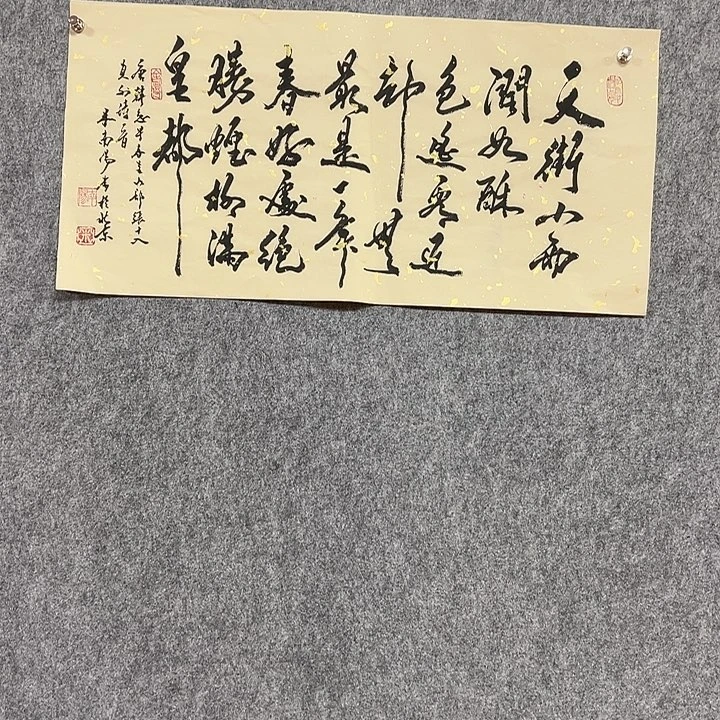 天街小雨
潤如酥
色遙看近
却無
最是一年
春好處絕
勝煙柳滿
皇都
唐韓愈早春呈水部張十八
員外詩
米南陽書於北京